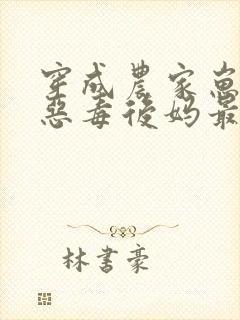 穿成農家崽
惡毒後媽最
林書豪